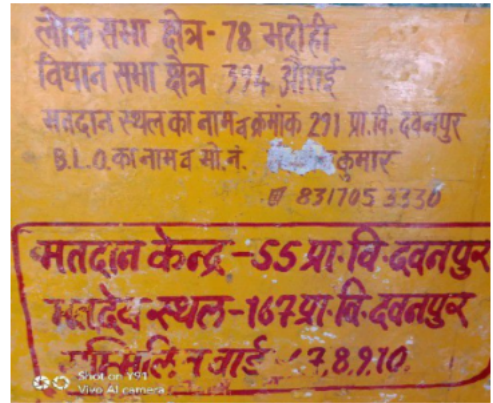 लोक सभा क्षेत्र- 78 भदोही
विधान सभा क्षेत्र 394 औराई
मतदान स्थल का नाम व क्रमांक 291 प्रा.वि. दवनपुर
B.L.O. का नाम व मो.नं. कुमार
831705 3330
मतदान केन्द्र-55 प्रा.वि.दवनपुर
मतदेय स्थल-167 प्रा.वि.दवनपुर
वार्ड 7,8,9,10.
Shot on Y91
Vivo AI camera